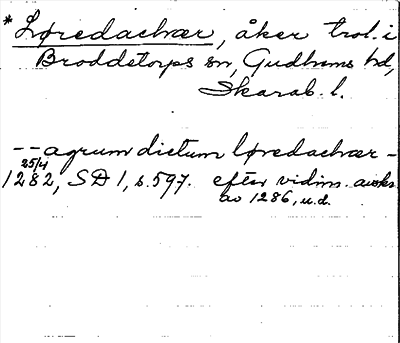 * Løredachær, åker trol. i
Broddetorps sn, Gudhems hd,
Skarab. l.
-- agrum dictum løredachær -
25/4
1282, SD 1, s. 597. efter vidim. avskr.
av 1286, u.d.